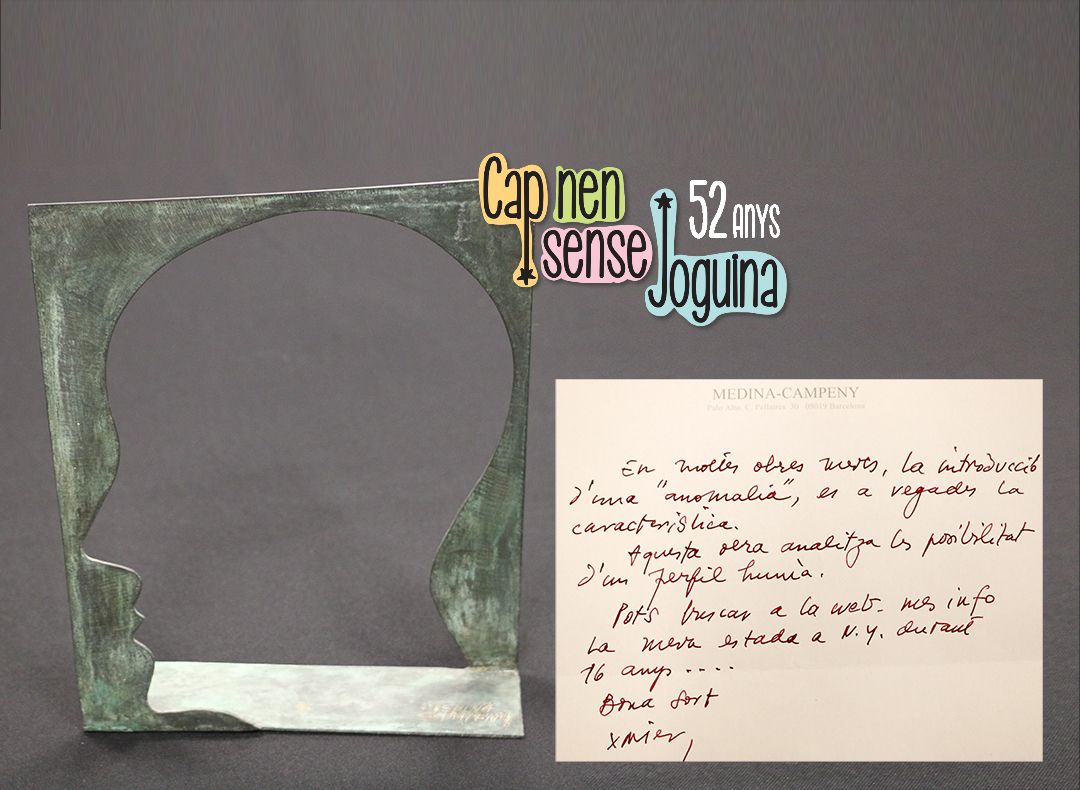 Cap nen
sense
Joguina
52 ANYS
MEDINA-CAMPENY
Palo Alto, C. Pellaires 30 08019 Barcelona
En moltes obres meves, la introducció
d'una "anomalia", es a vegades la
característica.
Aquesta obra analitza les posibilitat
d'un perfil humà.
Pots buscar a la web. mes info
La meva estada a N.Y. durant
16 anys ....
Bona Sort
Xavier,
MEDINA
CAMPENY